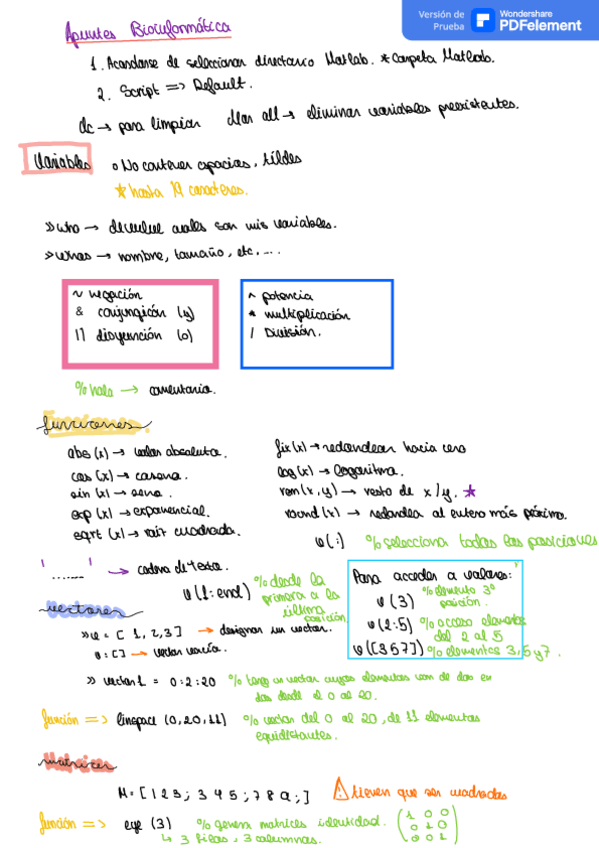 Versión de Prueba
Wondershare PDFelement
Apuntes Bioinformática
1. Acordarse de seleccionar directorio Matlab. * Carpeta Matlab.
2. Script => Default.
clc → para limpiar clear all → eliminar variables preexistentes.
Variables
o No contener espacios, tildes
* hasta 19 caracteres.
>> who → devuelve cuales son mis variables.
>> whos → nombre, tamaño, etc....
~ negación
& conjunción (y)
|| disyunción (o)
^ potencia
* multiplicación
/ División.
% hola → comentario.
funciones
abs (x) → valor absoluto.
cos (x) → coseno.
sin (x) → seno.
exp (x) → exponencial.
sqrt (x) → raíz cuadrada.
fix (x) → redondear hacia cero
log (x) → logaritmo.
rem (x, y) → resto de x / y. *
round (x) → redondea al entero más próximo.
v (:) % selecciona todas las posiciones
' ...... ' → cadena de texto.
v (1:end) % desde la primera a la última posición.
Para acceder a valores:
v (3) % elemento 3º posición.
v (2:5) % acceso elementos del 2 al 5
v ([3 5 7]) % elementos 3, 5 y 7.
vectores
>> v = [ 1, 2, 3 ] → designar un vector.
v = [ ] → vector vacío.
>> vector 1 = 0:2:20 % tengo un vector cuyos elementos van de dos en
dos desde el 0 al 20.
función => linspace (0, 20, 11) % vector del 0 al 20, de 11 elementos
equidistantes.
matrices
M = [ 1 2 3 ; 3 4 5 ; 7 8 9 ; ] ⚠ tienen que ser cuadradas
función => eye (3) % genera matrices identidad.
↳ 3 filas, 3 columnas.
1 0 0
0 1 0
0 0 1